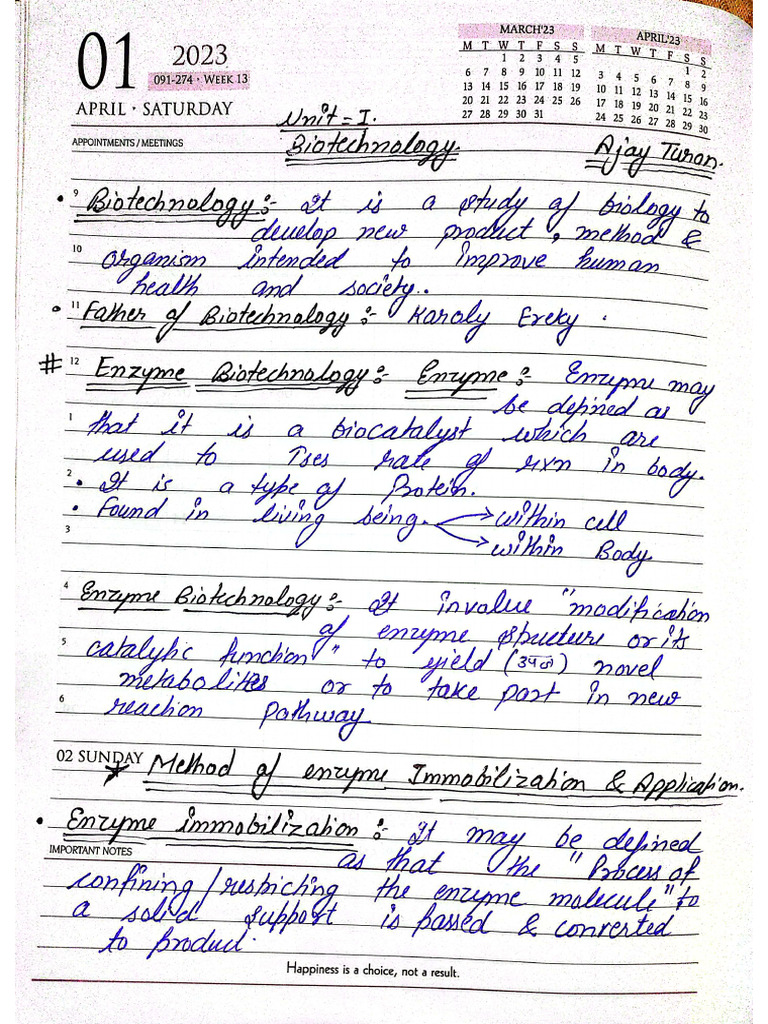 01 2023
091-274 • WEEK 13
APRIL • SATURDAY
MARCH'23
M T W T F S S
1 2 3 4 5
6 7 8 9 10 11 12
13 14 15 16 17 18 19
20 21 22 23 24 25 26
27 28 29 30 31
APRIL'23
M T W T F S S
1 2
3 4 5 6 7 8 9
10 11 12 13 14 15 16
17 18 19 20 21 22 23
24 25 26 27 28 29 30
Unit - I.
APPOINTMENTS / MEETINGS Biotechnology. Ajay Turan.
9 • Biotechnology :- It is a study of biology to
develop new product, method &
10 organism intended to improve human
health and society..
11 • Father of Biotechnology :- Karoly Ereky .
12 # Enzyme Biotechnology :- Enzyme :- Enzyme may
be defined as
1 that it is a biocatalyst which are
used to ↑ses rate of rxn in body.
2 • It is a type of Protein.
• Found in living being. → within cell
3 → within Body
4 Enzyme Biotechnology :- It involve "modification
of enzyme structure or its
5 catalytic function" to yield (उपज) novel
metabolites or to take part in new
6 reaction pathway
02 SUNDAY
★ Method of enzyme Immobilization & Application.
• Enzyme immobilization :- It may be defined
IMPORTANT NOTES as that the "Process of
confining / restricting the enzyme molecule" to
a solid support is passed & converted
to product.
Happiness is a choice, not a result.